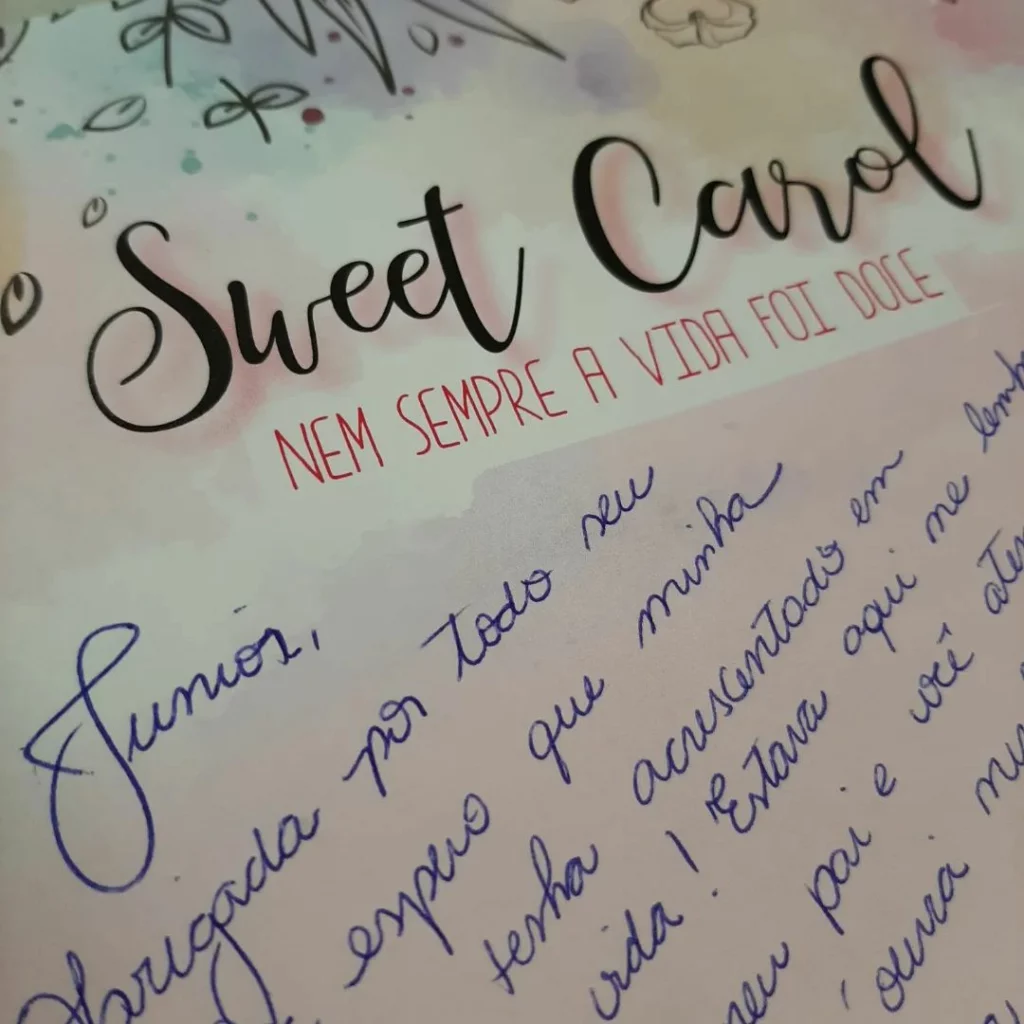 Sweet Carol
NEM SEMPRE A VIDA FOI DOCE
Junior,
Obrigada por todo seu
espero que minha
tenha acrescentado em
vida! Estava aqui me lemb
meu pai e você aten
ouvia